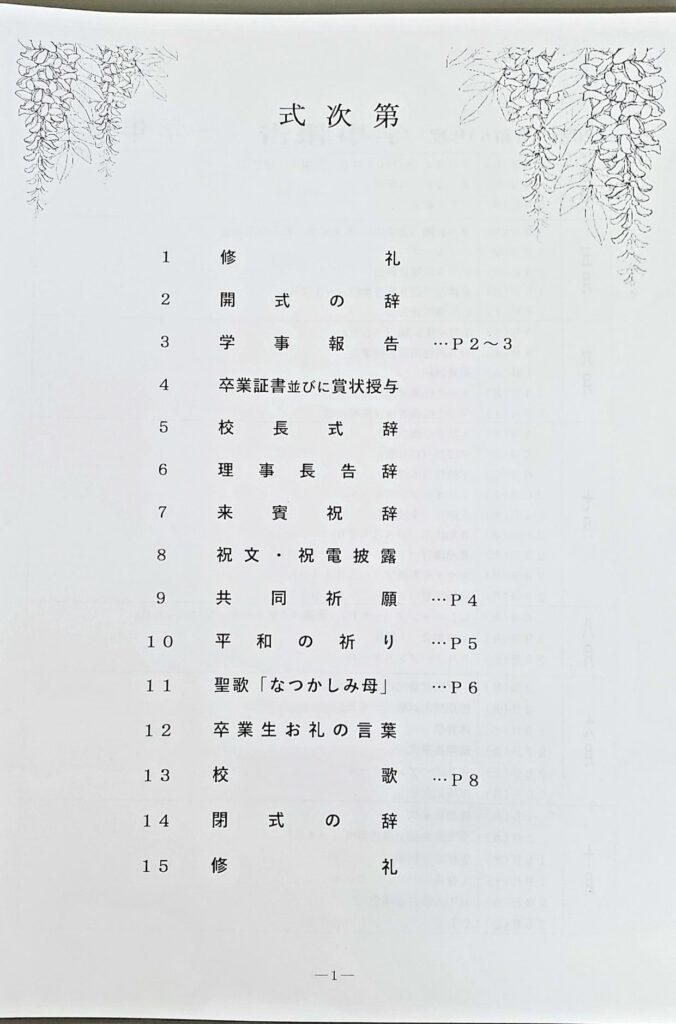 式次第
１ 修礼
２ 開式の辞
３ 学事報告 …Ｐ２～３
４ 卒業証書並びに賞状授与
５ 校長式辞
６ 理事長告辞
７ 来賓祝辞
８ 祝文・祝電披露
９ 共同祈願 …Ｐ４
１０ 平和の祈り …Ｐ５
１１ 聖歌「なつかしみ母」 …Ｐ６
１２ 卒業生お礼の言葉
１３ 校歌 …Ｐ８
１４ 閉式の辞
１５ 修礼
―１―